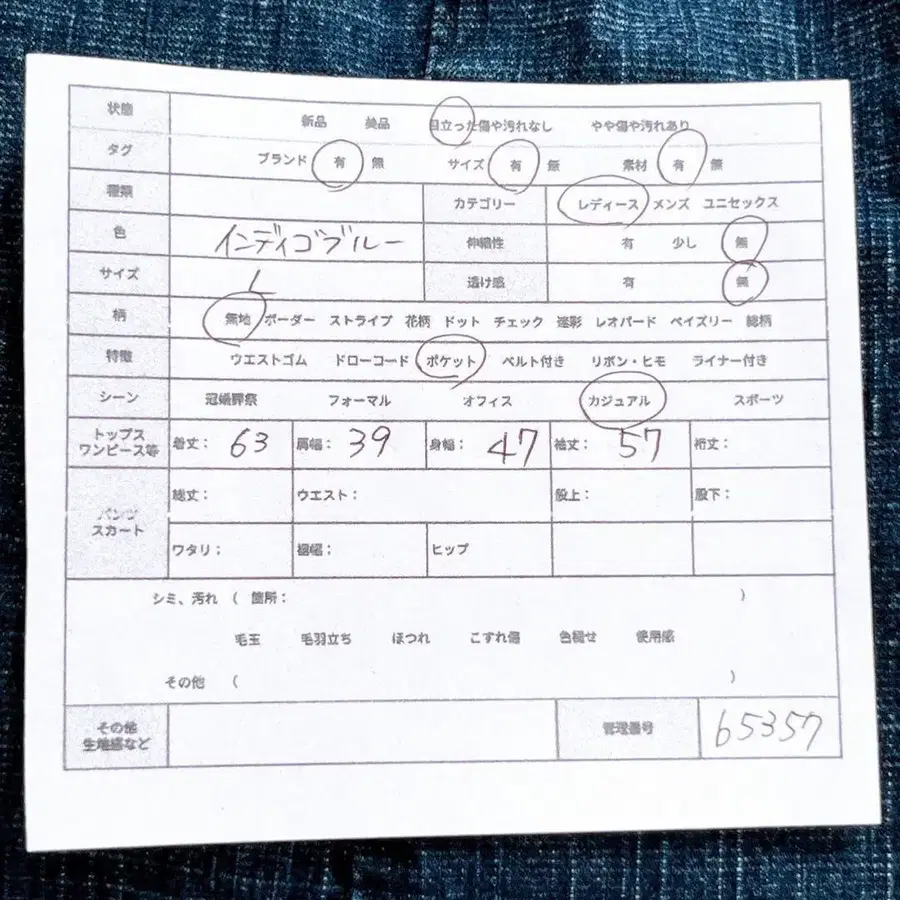 状態 新品 美品 目立った傷や汚れなし やや傷や汚れあり
タグ ブランド 有 無 サイズ 有 無 素材 有 無
種類 カテゴリー レディース メンズ ユニセックス
色 インディゴブルー 伸縮性 有 少し 無
サイズ L 透け感 有 無
柄 無地 ボーダー ストライプ 花柄 ドット チェック 迷彩 レオパード ペイズリー 総柄
特徴 ウエストゴム ドローコード ポケット ベルト付き リボン・ヒモ ライナー付き
シーン 冠婚葬祭 フォーマル オフィス カジュアル スポーツ
トップス
ワンピース等 着丈: 63 肩幅: 39 身幅: 47 袖丈: 57 裄丈:
パンツ
スカート 総丈: ウエスト: 股上: 股下:
ワタリ: 裾幅: ヒップ
シミ、汚れ ( 箇所: )
毛玉 毛羽立ち ほつれ こすれ傷 色褪せ 使用感
その他 ( )
その他
生地感など 管理番号 65357